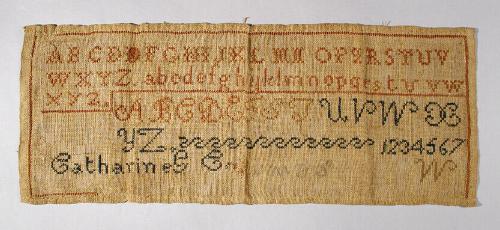 ABCDEFGHIJKLMNOPQRSTUV
WXYZ. abcdefghijklmnopqrstuvw
XYZ. ABCDEFGT UVWX
YZ. 1234567
Catharine
W